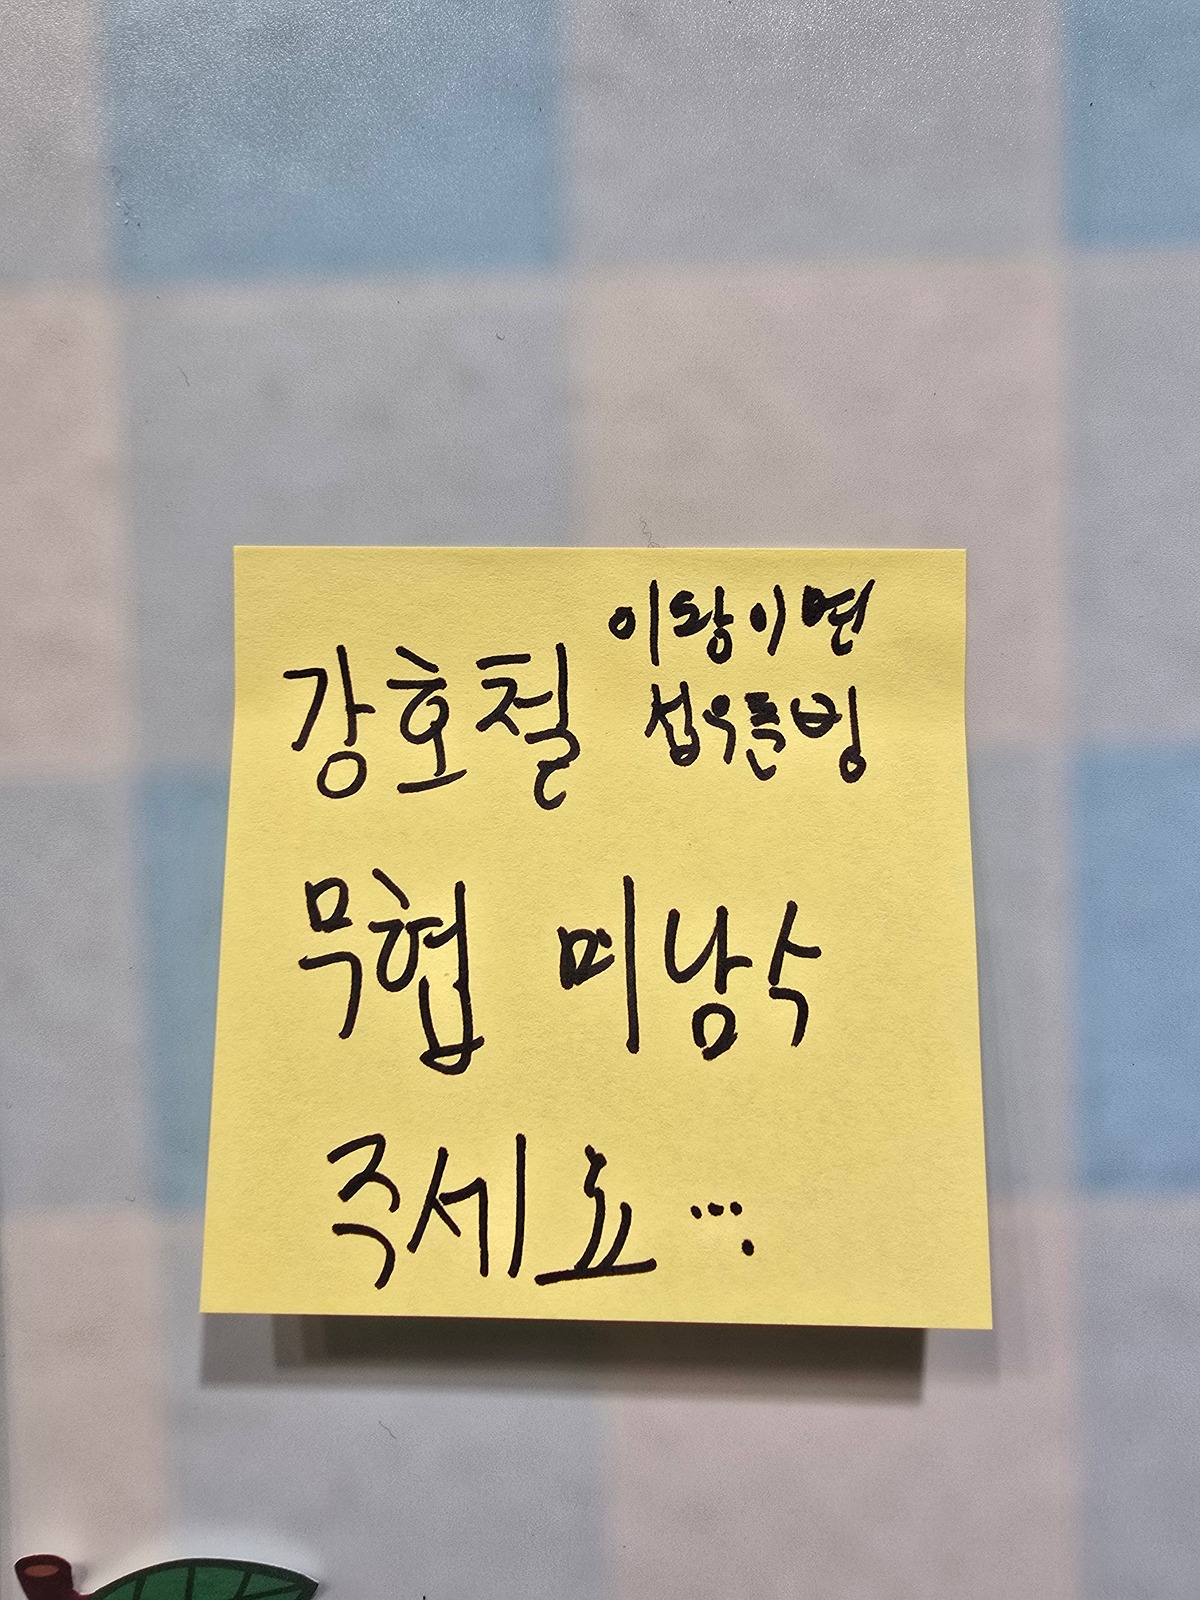 이왕이면
섭우른빙
강호철
무협 미남수
주세요...